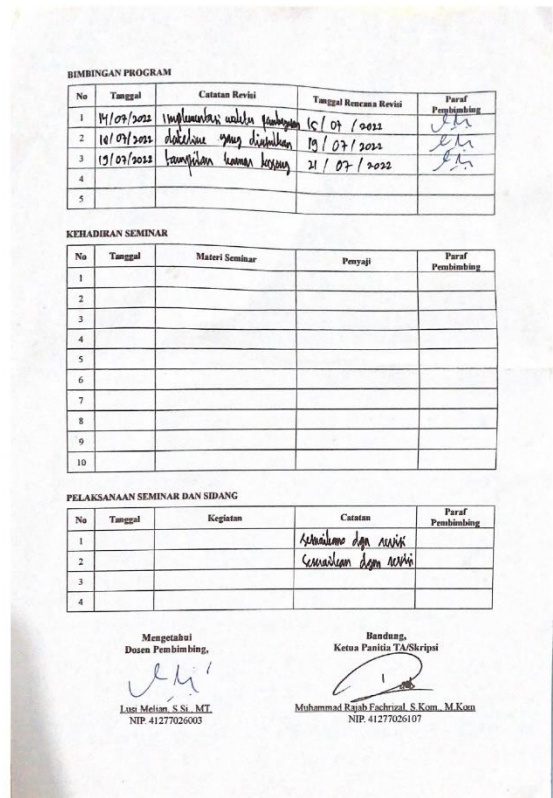 BIMBINGAN PROGRAM
No Tanggal Catatan Revisi Tanggal Rencana Revisi Paraf Pembimbing
1 14/07/2022 implementasi waktu 15/07/2022
2 18/07/2022 dateline yang diusulkan 19/07/2022
3 19/07/2022 tampilan kosong 21/07/2022
4
5
KEHADIRAN SEMINAR
No Tanggal Materi Seminar Penyaji Paraf Pembimbing
1
2
3
4
5
6
7
8
9
10
PELAKSANAAN SEMINAR DAN SIDANG
No Tanggal Kegiatan Catatan Paraf Pembimbing
1 dgn revisi
2 Sesuaikan dgn revisi
3
4
Mengetahui
Dosen Pembimbing,
Lusi Melian, S.Si., MT.
NIP. 41277026003
Bandung,
Ketua Panitia TA/Skripsi
Muhammad Rajab Fachrizal, S.Kom., M.Kom
NIP. 41277026107